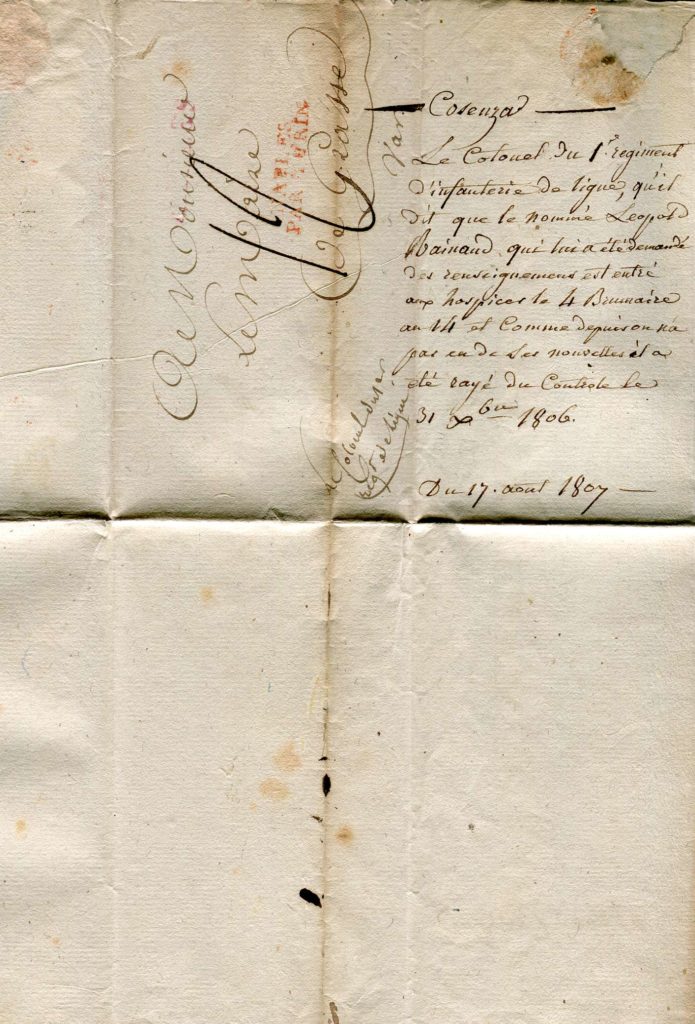 A Monsieur
Le Maire
de Grasse
Var
NAPLES
PAR TURIN
Le Colonel du 1er
regt de ligne
Cosenza
Le Colonel du 1r regiment
d'infanterie de ligne, qu'il
dit que le nommé Leopold
Rainaud qui lui a été demandé
des renseignemens est entré
aux hospices le 4 Brumaire
an 14 et Comme depuis on n'a
pas eu de ses nouvelles il a
été rayé du Controle le
31 xbre 1806.
Du 17. aout 1807